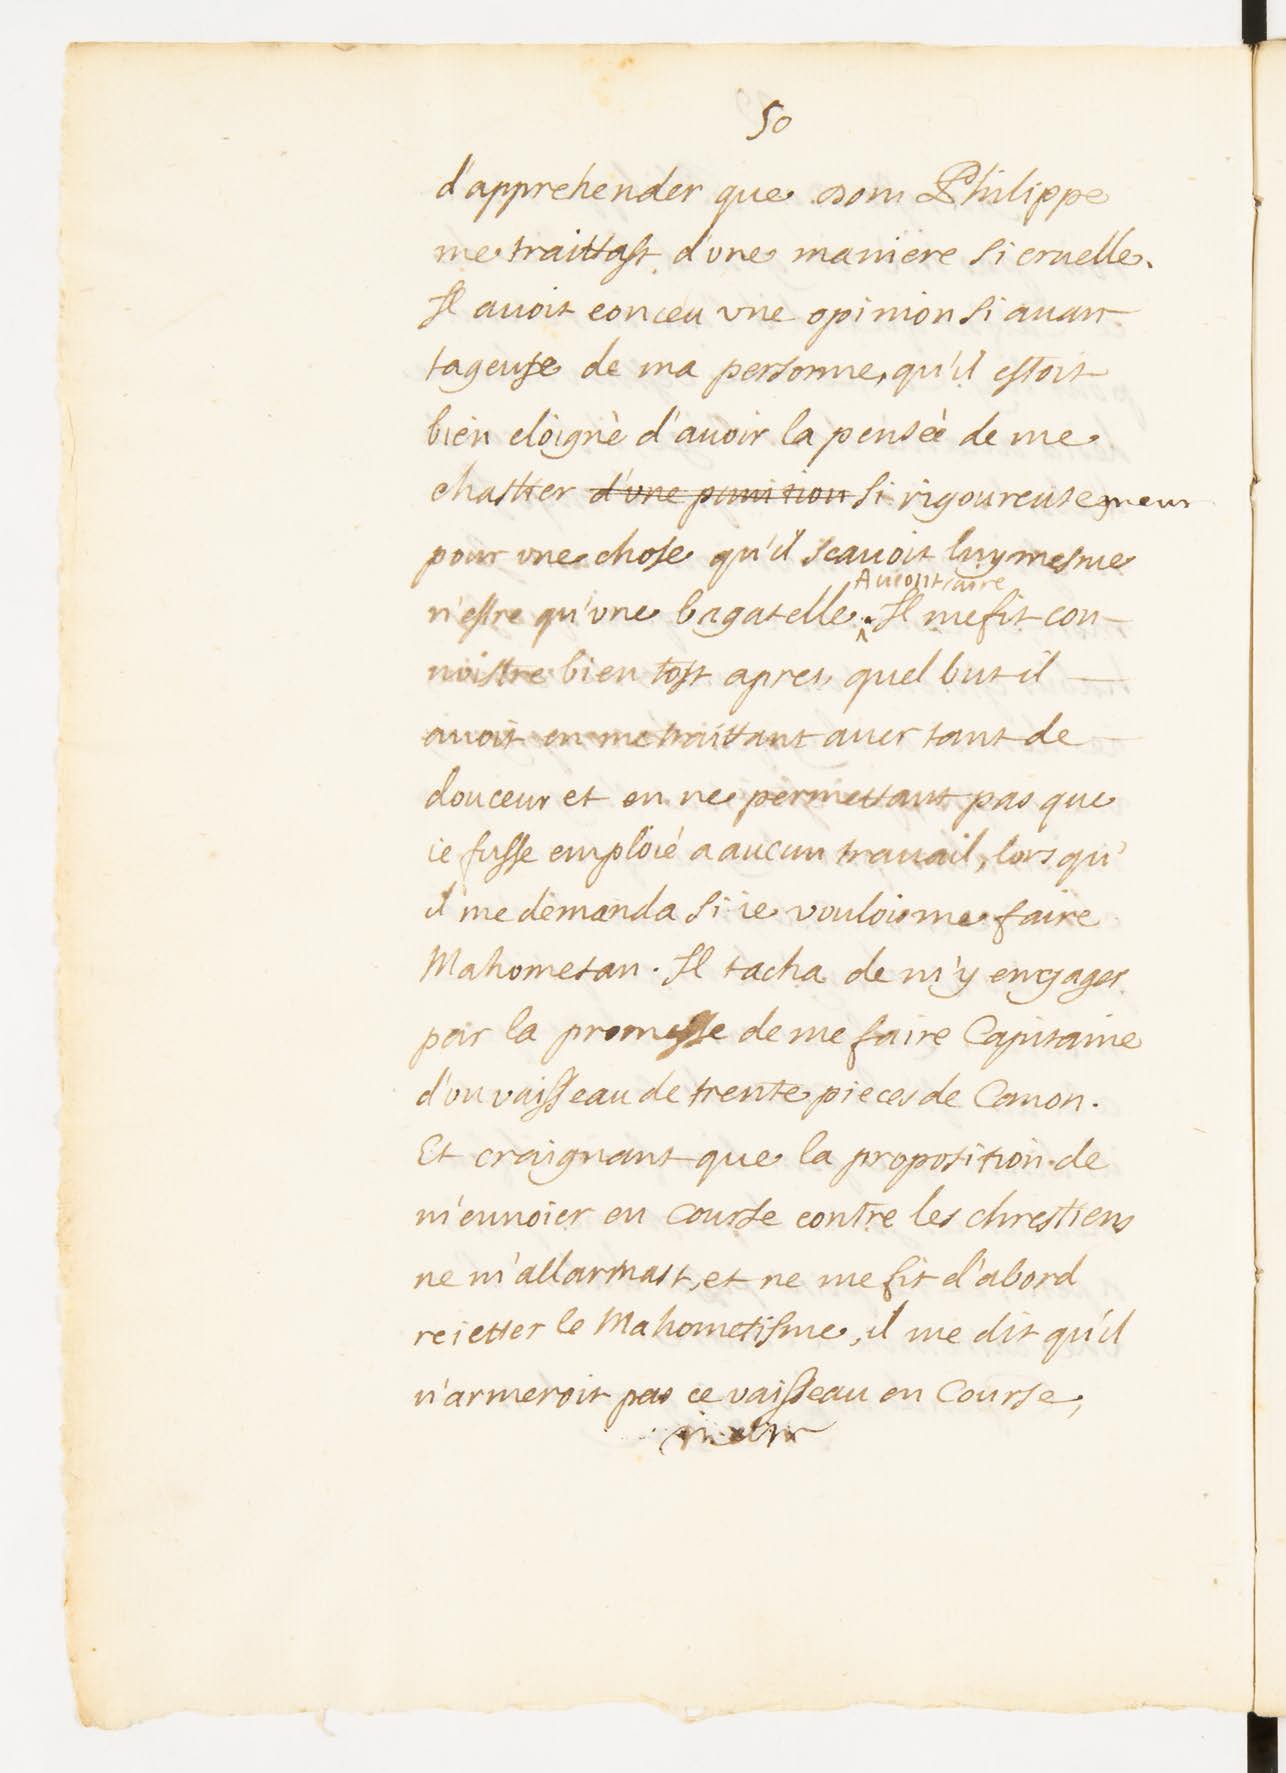 50
d'apprehender que dom Philippe
me traittast d'une maniere si cruelle.
Il auoit conceu vne opinion si auan-
tageuse de ma personne, qu'il estoit
bien eloignè d'auoir la pensée de me
chastier d'vne punition si rigoureusement
pour vne chose qu'il scauoit luy mesme
Au contraire
n'estre qu'vne bagatelle. Il me fit con-
noistre bien tost apres, quel but il
auoit en me traittant auec tant de
douceur et en ne permettant pas que
ie fusse emploié a aucun trauail, lors qu'
il me demanda si ie voulois me faire
Mahometan. Il tacha de m'y engager
par la promesse de me faire Capitaine
d'vn vaisseau de trente pieces de Canon.
Et craignant que la proposition de
m'enuoier en Course contre les chrestiens
ne m'allarmast, et ne me fit d'abord
reietter le Mahometisme, il me dit qu'il
n'armeroit pas ce vaisseau en Course,